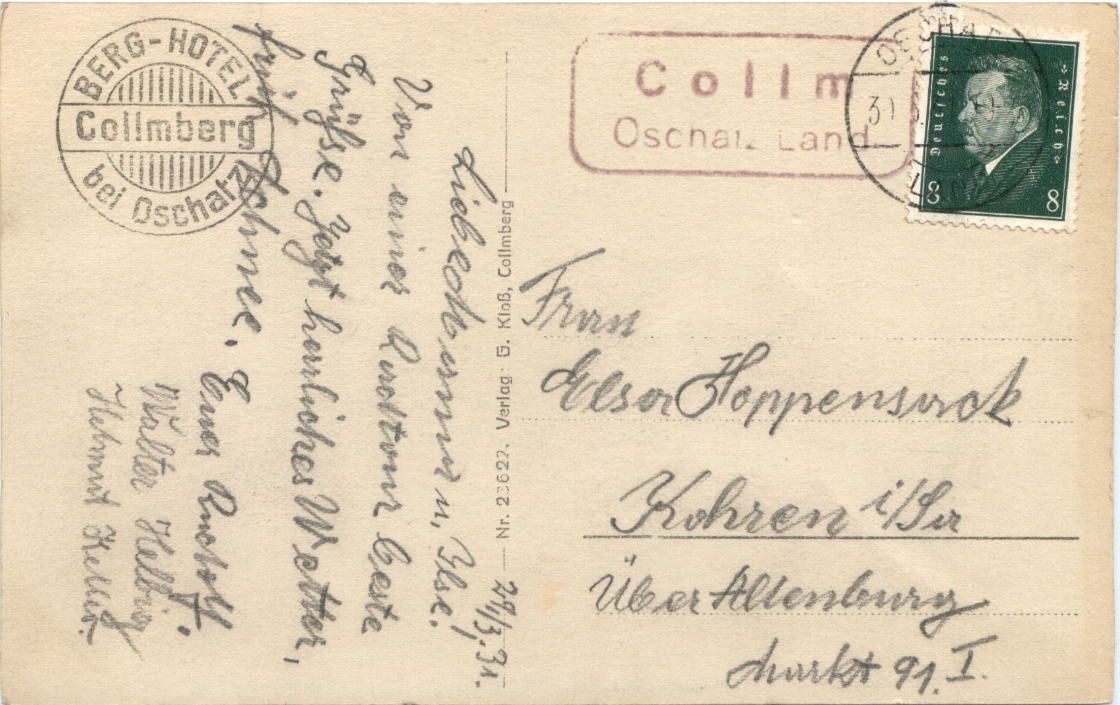 BERG-HOTEL
Collmberg
bei Oschatz
Collm
Oschatz Land
Deutsches Reich
8 8
29/3.31.
Liebe Mama u. Ilse!
Von einer Radtour beste
Grüße. Jetzt herrliches Wetter,
früh Schnee. Euer Rudolf.
Walter Helbig
Helmut Keller.
Nr. 23622. Verlag: G. Kloß, Collmberg
Frau
Elsa Hoppensack
Kohren i/Sa
Über Altenburg
Markt 91. I.